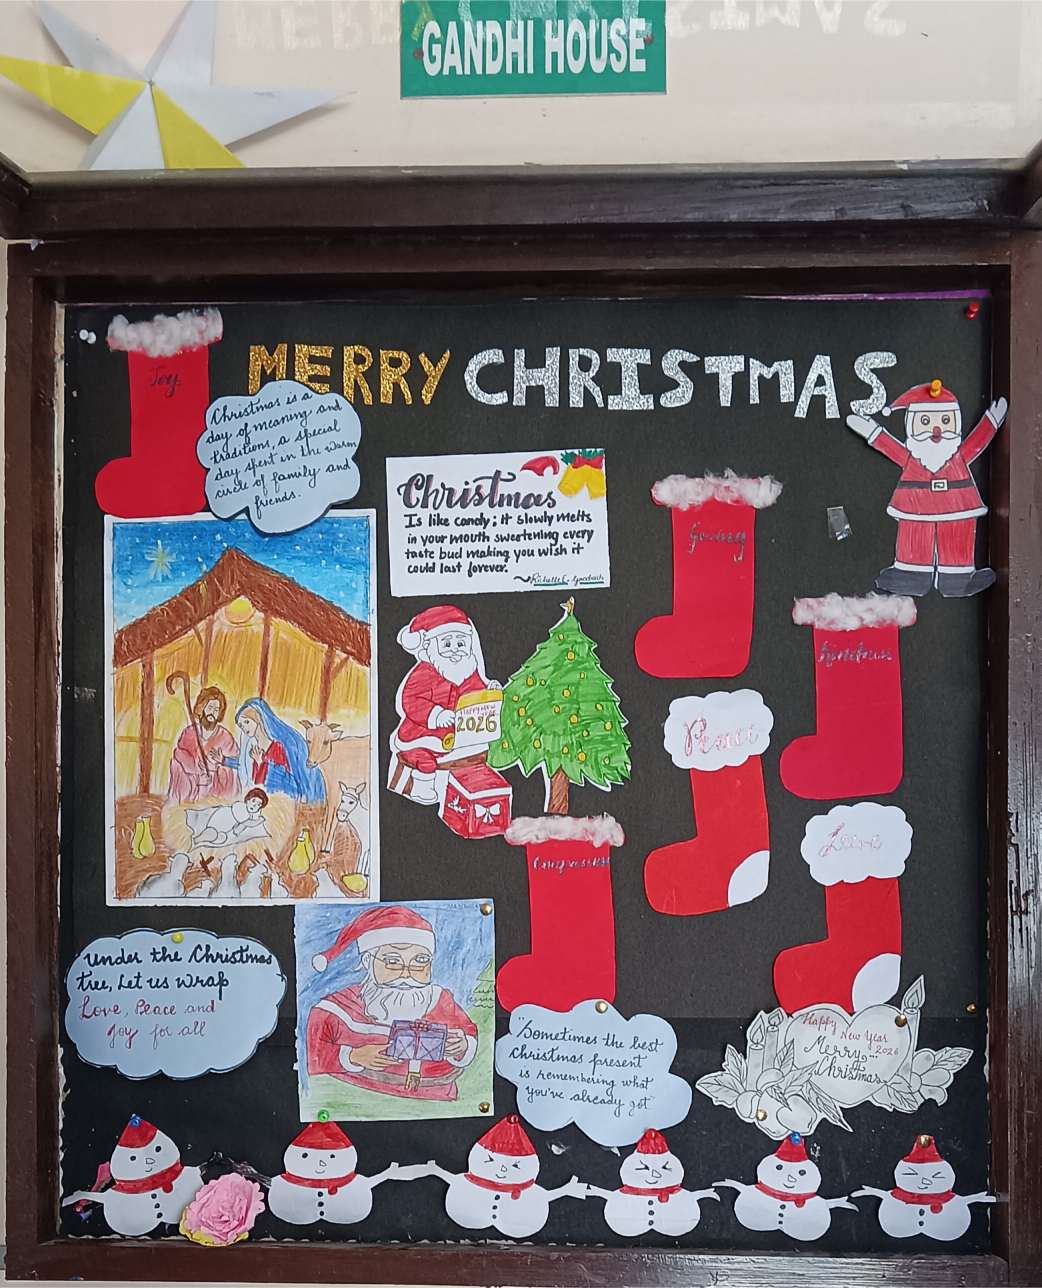 GANDHI HOUSE
MERRY CHRISTMAS
Joy
Christmas is a
day of meaning and
traditions, a special
day spent in the warm
circle of family and
friends.
Christmas
Is like candy; it slowly melts
in your mouth sweetening every
taste bud making you wish it
could last forever.
Giving
Kindness
HAPPY NEW
YEAR
2026
Peace
Love
under the Christmas
tree, Let us wrap
Love, Peace and
Joy for all
"Sometimes the best
christmas present
is remembering what
you've already got"
Happy New Year
2026
Merry
Christmas